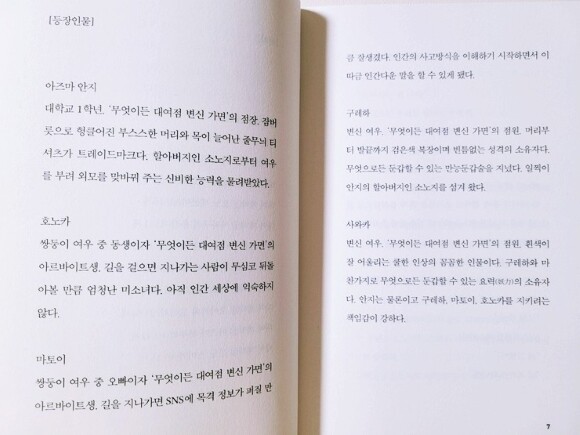 [등장인물]
아즈마 안지
대학교 1학년. '무엇이든 대여점 변신 가면'의 점장. 잠버
릇으로 헝클어진 부스스한 머리와 목이 늘어난 줄무늬 티
셔츠가 트레이드마크다. 할아버지인 소노지로부터 여우
를 부려 외모를 맞바꿔 주는 신비한 능력을 물려받았다.
호노카
쌍둥이 여우 중 동생이자 '무엇이든 대여점 변신 가면'의
아르바이트생. 길을 걸으면 지나가는 사람이 무심코 뒤돌
아볼 만큼 엄청난 미소녀다. 아직 인간 세상에 익숙하지
않다.
마토이
쌍둥이 여우 중 오빠이자 '무엇이든 대여점 변신 가면'의
아르바이트생. 길을 지나가면 SNS에 목격 정보가 퍼질 만
큼 잘생겼다. 인간의 사고방식을 이해하기 시작하면서 이
따금 인간다운 말을 할 수 있게 됐다.
구레하
변신 여우. '무엇이든 대여점 변신 가면'의 점원. 머리부
터 발끝까지 검은색 복장이며 빈틈없는 성격의 소유자다.
무엇으로든 둔갑할 수 있는 만능둔갑술을 지녔다. 일찍이
안지의 할아버지인 소노지를 섬겨 왔다.
사와카
변신 여우. '무엇이든 대여점 변신 가면'의 점원. 흰색이
잘 어울리는 살뜰한 인상의 꼼꼼한 인물이다. 구레하와 마
찬가지로 무엇으로든 둔갑할 수 있는 요력(妖力)의 소유자
다. 안지는 물론이고 구레하, 마토이, 호노카를 지키려는
책임감이 강하다.
7